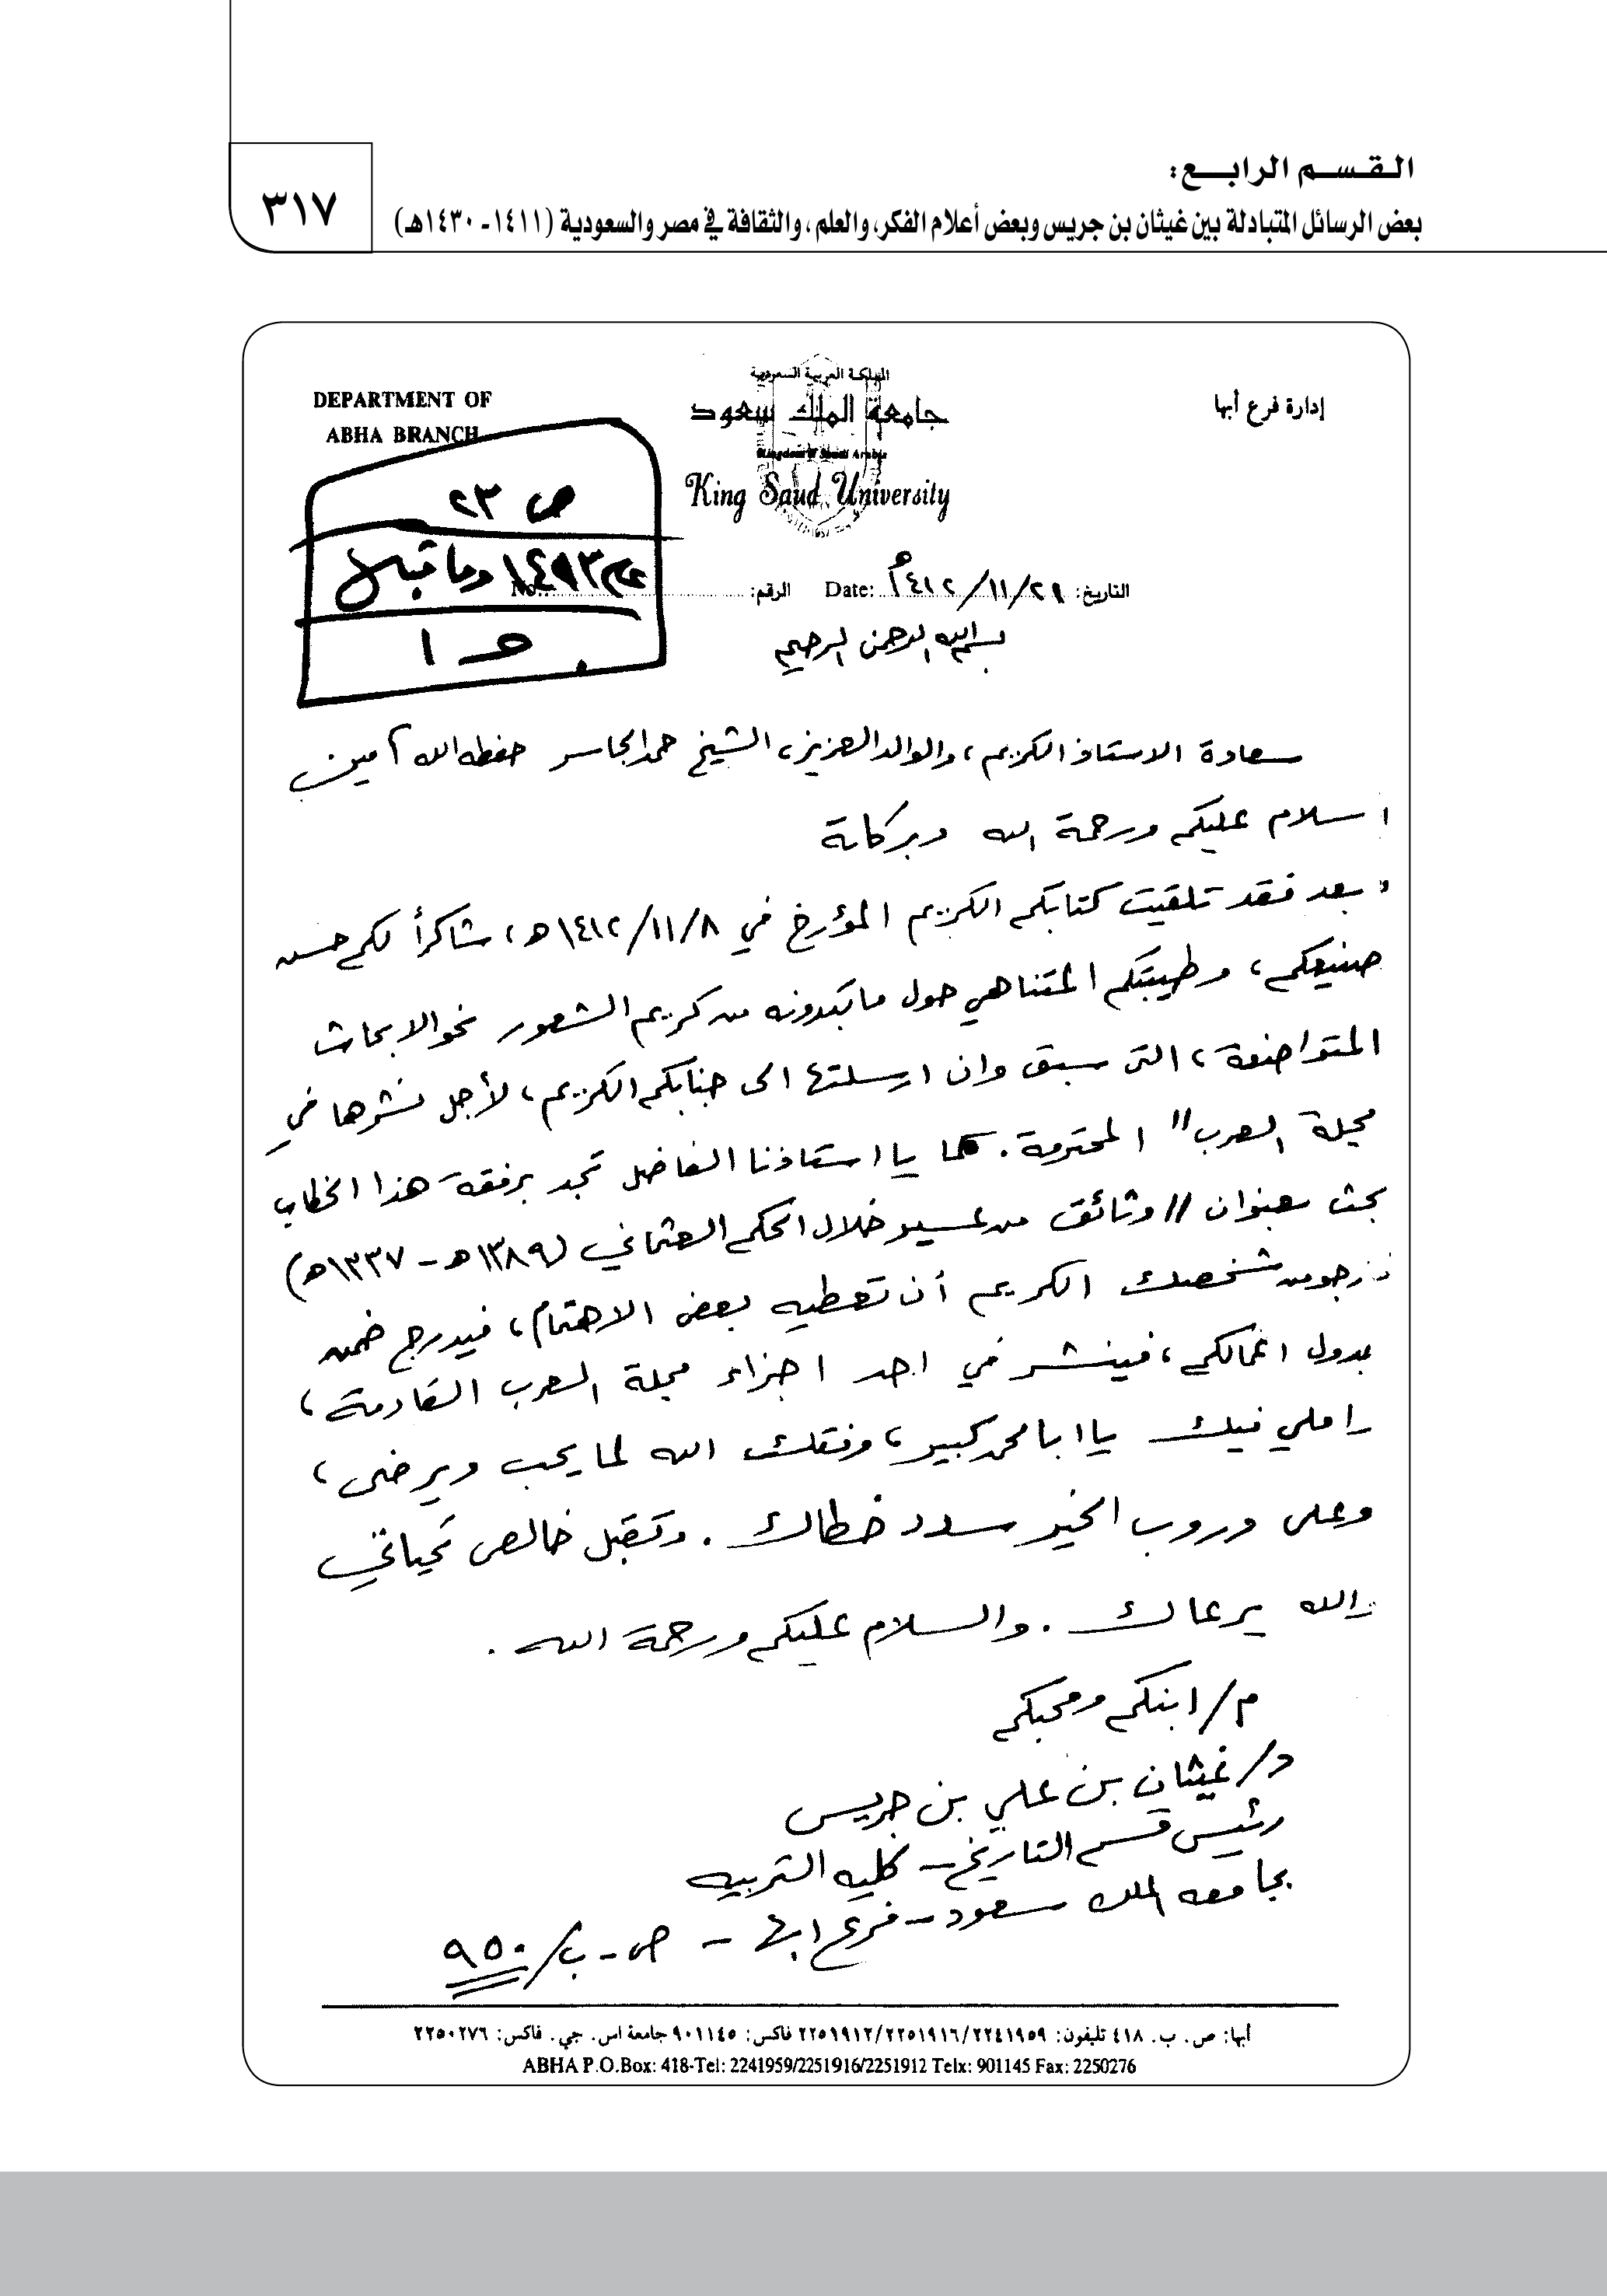 القسم الرابع:
بعض الرسائل المتبادلة بين غيثان بن جريس وبعض أعلام الفكر، والعلم، والثقافة في مصر والسعودية (١٤١١-١٤٣٠هـ)
٣١٧
إدارة فرع أبها
المملكة العربية السعودية
جامعة الملك سعود
Kingdom of Saudi Arabia
King Saud University
DEPARTMENT OF
ABHA BRANCH
ص ٢٣
١٤٩٣ وما قبل
ح ١
التاريخ: ٢٩/١١/١٤١٢هـ Date: الرقم: No.:
بسم الله الرحمن الرحيم
سعادة الاستاذ الكريم، والوالد العزيز، الشيخ حمد الجاسر حفظه الله آمين
السلام عليكم ورحمة الله وبركاتة
وبعد فقد تلقيت كتابكم الكريم المؤرخ في ٨/١١/١٤١٢هـ، شاكراً لكم حسن
صنيعكم، وطيبتكم المتناهي حول ما تبدونه من كريم الشعور نحو الابحاث
المتواضعة، التى سبق وان ارسلتها الى جنابكم الكريم، لأجل نشرها في
مجلة العرب" المحترمة. كما يا استاذنا الفاضل تجد برفقة هذا الخطاب
بحث بعنوان "وثائق من عسير خلال الحكم العثماني (١٣٨٩هـ - ١٣٣٧هـ)
نرجو من شخصك الكريم أن تعطيه بعض الاهتمام، فيدرج ضمن
جدول اعمالكم، فينشر في احد اجزاء مجلة العرب القادمة،
واملي فيك يا ابا محمد كبير، وفقك الله لما يحب ويرضى،
وعلى دروب الخير سدد خطاك. وتقبل خالص تحياتي
والله يرعاك. والسلام عليكم ورحمة الله.
م/ ابنكم ومحبكم
د/ غيثان بن علي بن جريس
رئيس قسم التاريخ - كلية التربيه
بجامعه الملك سعود - فرع ابها - ص.ب/ ٩٥٠
أبها: ص. ب. ٤١٨ تليفون: ٢٢٤١٩٥٩/٢٢٥١٩١٦/٢٢٥١٩١٢ فاكس: ٩٠١١٤٥ جامعة اس. جي. فاكس: ٢٢٥٠٢٧٦
ABHA P.O.Box: 418-Tel: 2241959/2251916/2251912 Telx: 901145 Fax: 2250276